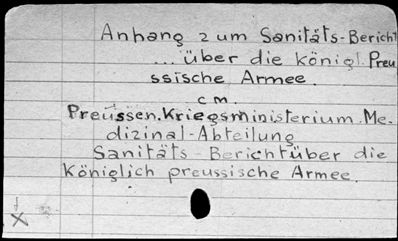 Anhang zum Sanitäts-Bericht
... über die königl. Preu
ssische Armee.
cm.
Preussen. Kriegsministerium. Me-
dizinal-Abteilung
Sanitäts-Bericht über die
Königlich preussische Armee.
X